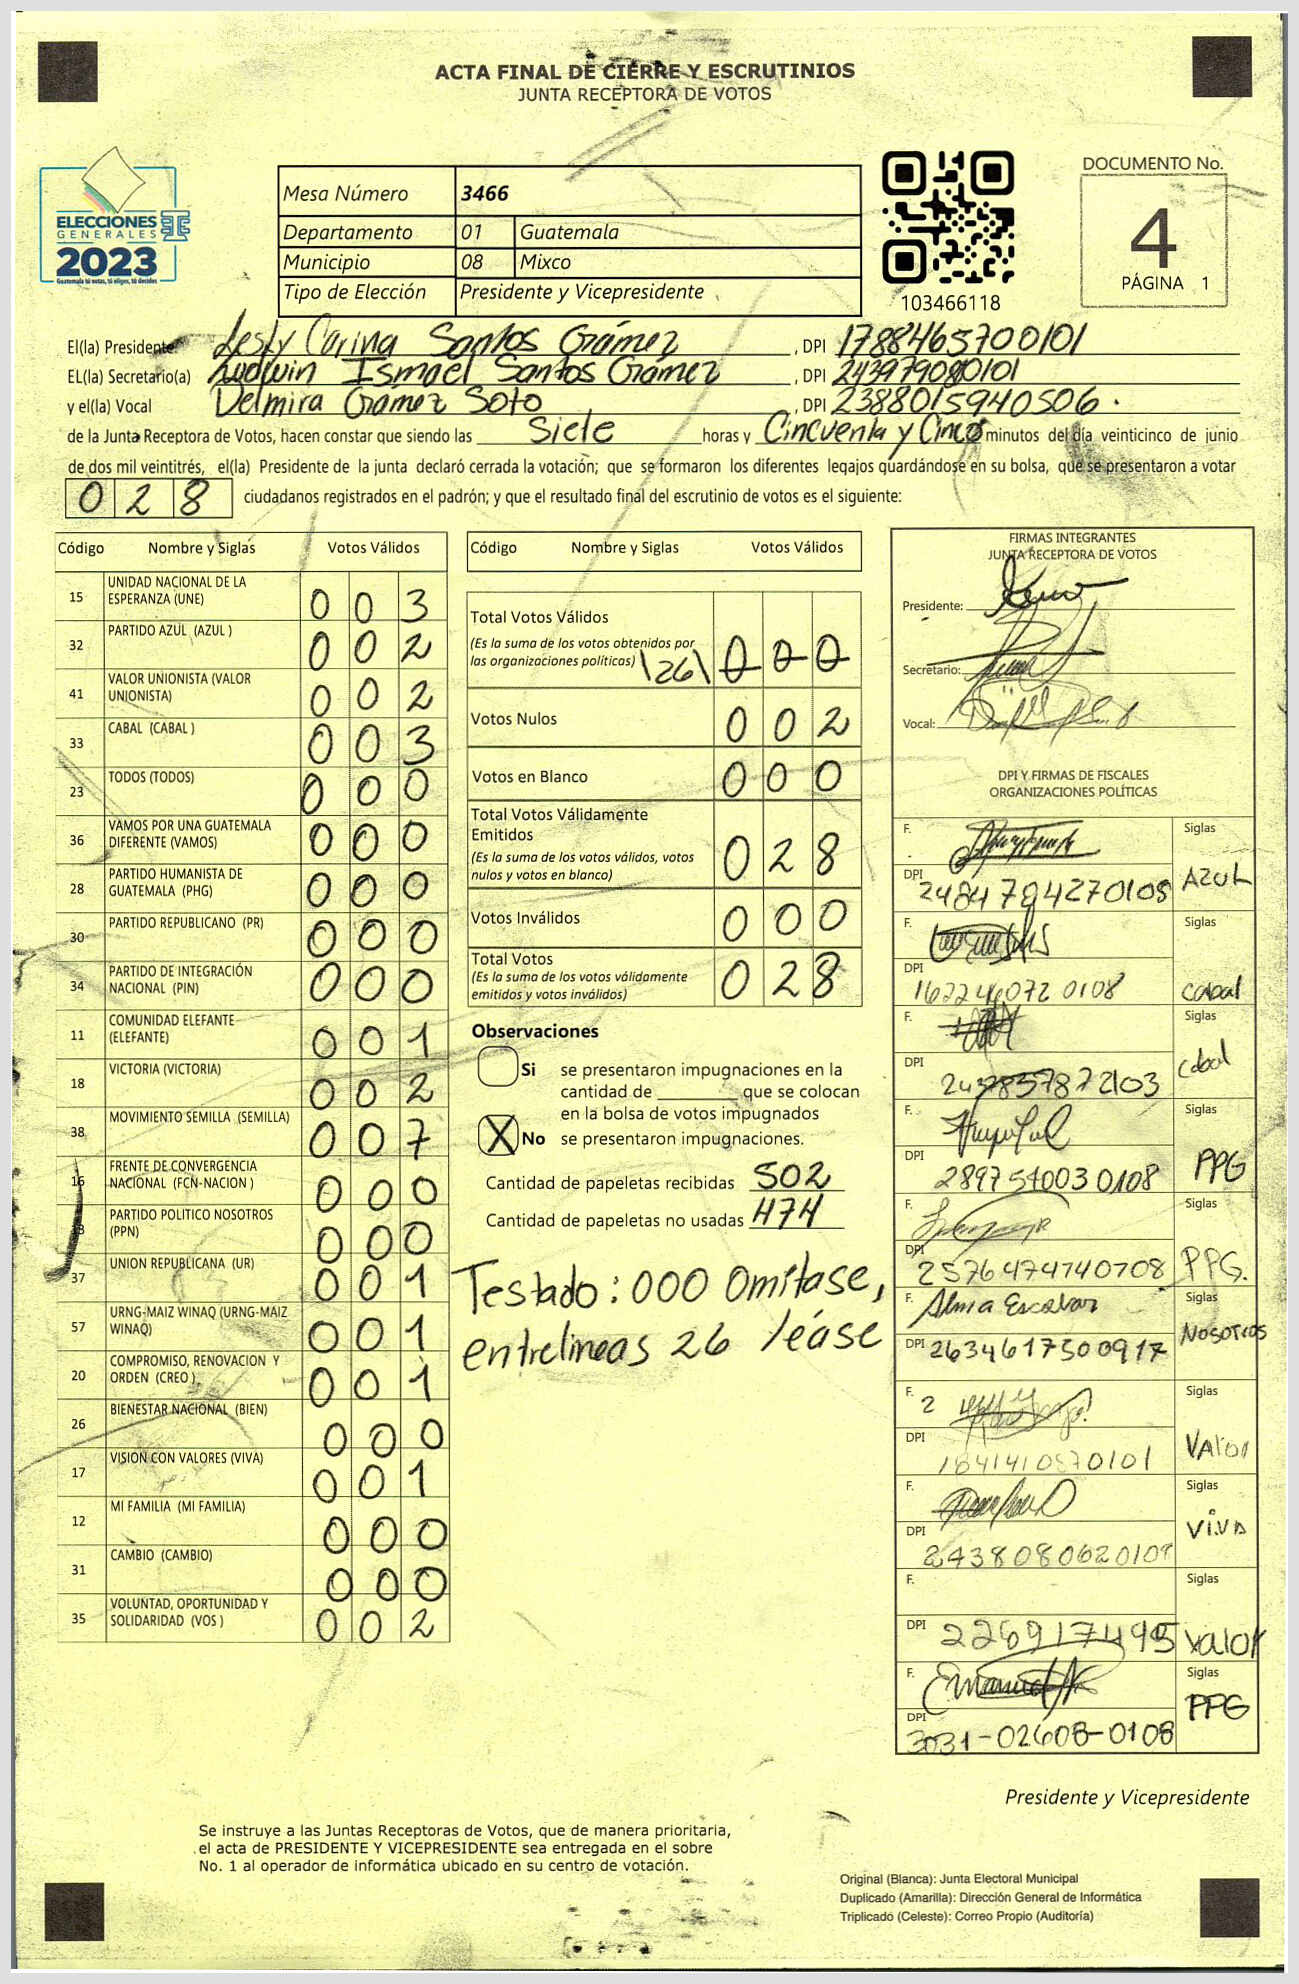 ACTA FINAL DE CIERRE Y ESCRUTINIOS
JUNTA RECEPTORA DE VOTOS
ELECCIONES
GENERALES
2023
Guatemala tú votas, tú eliges, tú decides
Mesa Número 3466
Departamento 01 Guatemala
Municipio 08 Mixco
Tipo de Elección Presidente y Vicepresidente
103466118
DOCUMENTO No.
4
PÁGINA 1
El(la) Presidente Lesly Carina Santos Grámez, DPI 1788465700101
EL(la) Secretario(a) Ludwin Ismael Santos Grámez, DPI 243979080101
y el(la) Vocal Delmira Gramez Soto, DPI 2388015940506.
de la Junta Receptora de Votos, hacen constar que siendo las Siete horas y Cincuenta y Cinco minutos del día veinticinco de junio
de dos mil veintitrés, el(la) Presidente de la junta declaró cerrada la votación; que se formaron los diferentes legajos guardándose en su bolsa, que se presentaron a votar
028 ciudadanos registrados en el padrón; y que el resultado final del escrutinio de votos es el siguiente:
Código Nombre y Siglas Votos Válidos
15 UNIDAD NACIONAL DE LA ESPERANZA (UNE) 003
32 PARTIDO AZUL (AZUL ) 002
41 VALOR UNIONISTA (VALOR UNIONISTA) 002
33 CABAL (CABAL ) 003
23 TODOS (TODOS) 000
36 VAMOS POR UNA GUATEMALA DIFERENTE (VAMOS) 000
28 PARTIDO HUMANISTA DE GUATEMALA (PHG) 000
30 PARTIDO REPUBLICANO (PR) 000
34 PARTIDO DE INTEGRACIÓN NACIONAL (PIN) 000
11 COMUNIDAD ELEFANTE (ELEFANTE) 001
18 VICTORIA (VICTORIA) 002
38 MOVIMIENTO SEMILLA (SEMILLA) 007
16 FRENTE DE CONVERGENCIA NACIONAL (FCN-NACION ) 000
PARTIDO POLITICO NOSOTROS (PPN) 000
37 UNION REPUBLICANA (UR) 001
57 URNG-MAIZ WINAQ (URNG-MAIZ WINAQ) 001
20 COMPROMISO, RENOVACION Y ORDEN (CREO ) 001
26 BIENESTAR NACIONAL (BIEN) 000
17 VISION CON VALORES (VIVA) 001
12 MI FAMILIA (MI FAMILIA) 000
31 CAMBIO (CAMBIO) 000
35 VOLUNTAD, OPORTUNIDAD Y SOLIDARIDAD (VOS ) 002
Código Nombre y Siglas Votos Válidos
Total Votos Válidos
(Es la suma de los votos obtenidos por
las organizaciones políticas) \26\ 000
Votos Nulos 002
Votos en Blanco 000
Total Votos Válidamente
Emitidos
(Es la suma de los votos válidos, votos
nulos y votos en blanco) 028
Votos Inválidos 000
Total Votos
(Es la suma de los votos válidamente
emitidos y votos inválidos) 028
Observaciones
Si se presentaron impugnaciones en la
cantidad de ________ que se colocan
en la bolsa de votos impugnados
X No se presentaron impugnaciones.
Cantidad de papeletas recibidas 502
Cantidad de papeletas no usadas 474
Testado: 000 Omitase,
entrelineas 26 léase
FIRMAS INTEGRANTES
JUNTA RECEPTORA DE VOTOS
Presidente:
Secretario:
Vocal:
DPI Y FIRMAS DE FISCALES
ORGANIZACIONES POLÍTICAS
F. Siglas
DPI 2484784270108 AZUL
F. Siglas
DPI 1622460720108 cabal
F. Siglas
DPI 2437857872103 cabal
F. Siglas
DPI 2897547030108 PPG
F. Siglas
DPI 2576474740708 PPG.
F. Alma Escobar Siglas
DPI 2634617500917 NOSOTROS
F. 2 Siglas
DPI 1841410570101 VALOR
F. Siglas
DPI 2438080620109 VIVA
F. Siglas
DPI 2269117495 Valor
F. Siglas
DPI 3031-02608-0108 PPG
Presidente y Vicepresidente
Se instruye a las Juntas Receptoras de Votos, que de manera prioritaria,
el acta de PRESIDENTE Y VICEPRESIDENTE sea entregada en el sobre
No. 1 al operador de informática ubicado en su centro de votación.
Original (Blanca): Junta Electoral Municipal
Duplicado (Amarilla): Dirección General de Informática
Triplicado (Celeste): Correo Propio (Auditoría)